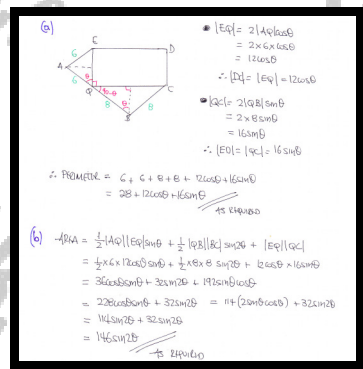 (a)
E
D
6
A
θ
6
Q
90-θ
C
θ
8
8
B
• |EQ| = 2|AQ|cosθ
= 2×6×cosθ
= 12cosθ
∴ |DC| = |EQ| = 12cosθ
• |QC| = 2|QB|sinθ
= 2×8sinθ
= 16sinθ
∴ |ED| = |QC| = 16sinθ
∴ PERIMETER = 6 + 6 + 8 + 8 + 12cosθ + 16sinθ
= 28 + 12cosθ + 16sinθ
AS REQUIRED
(b) AREA = ½|AQ||EQ|sinθ + ½|QB||BC|sin2θ + |EQ||QC|
= ½×6×12cosθsinθ + ½×8×8 sin2θ + 12cosθ × 16sinθ
= 36cosθsinθ + 32sin2θ + 192sinθcosθ
= 228cosθsinθ + 32sin2θ = 114(2sinθcosθ) + 32sin2θ
= 114sin2θ + 32sin2θ
= 146sin2θ
AS REQUIRED